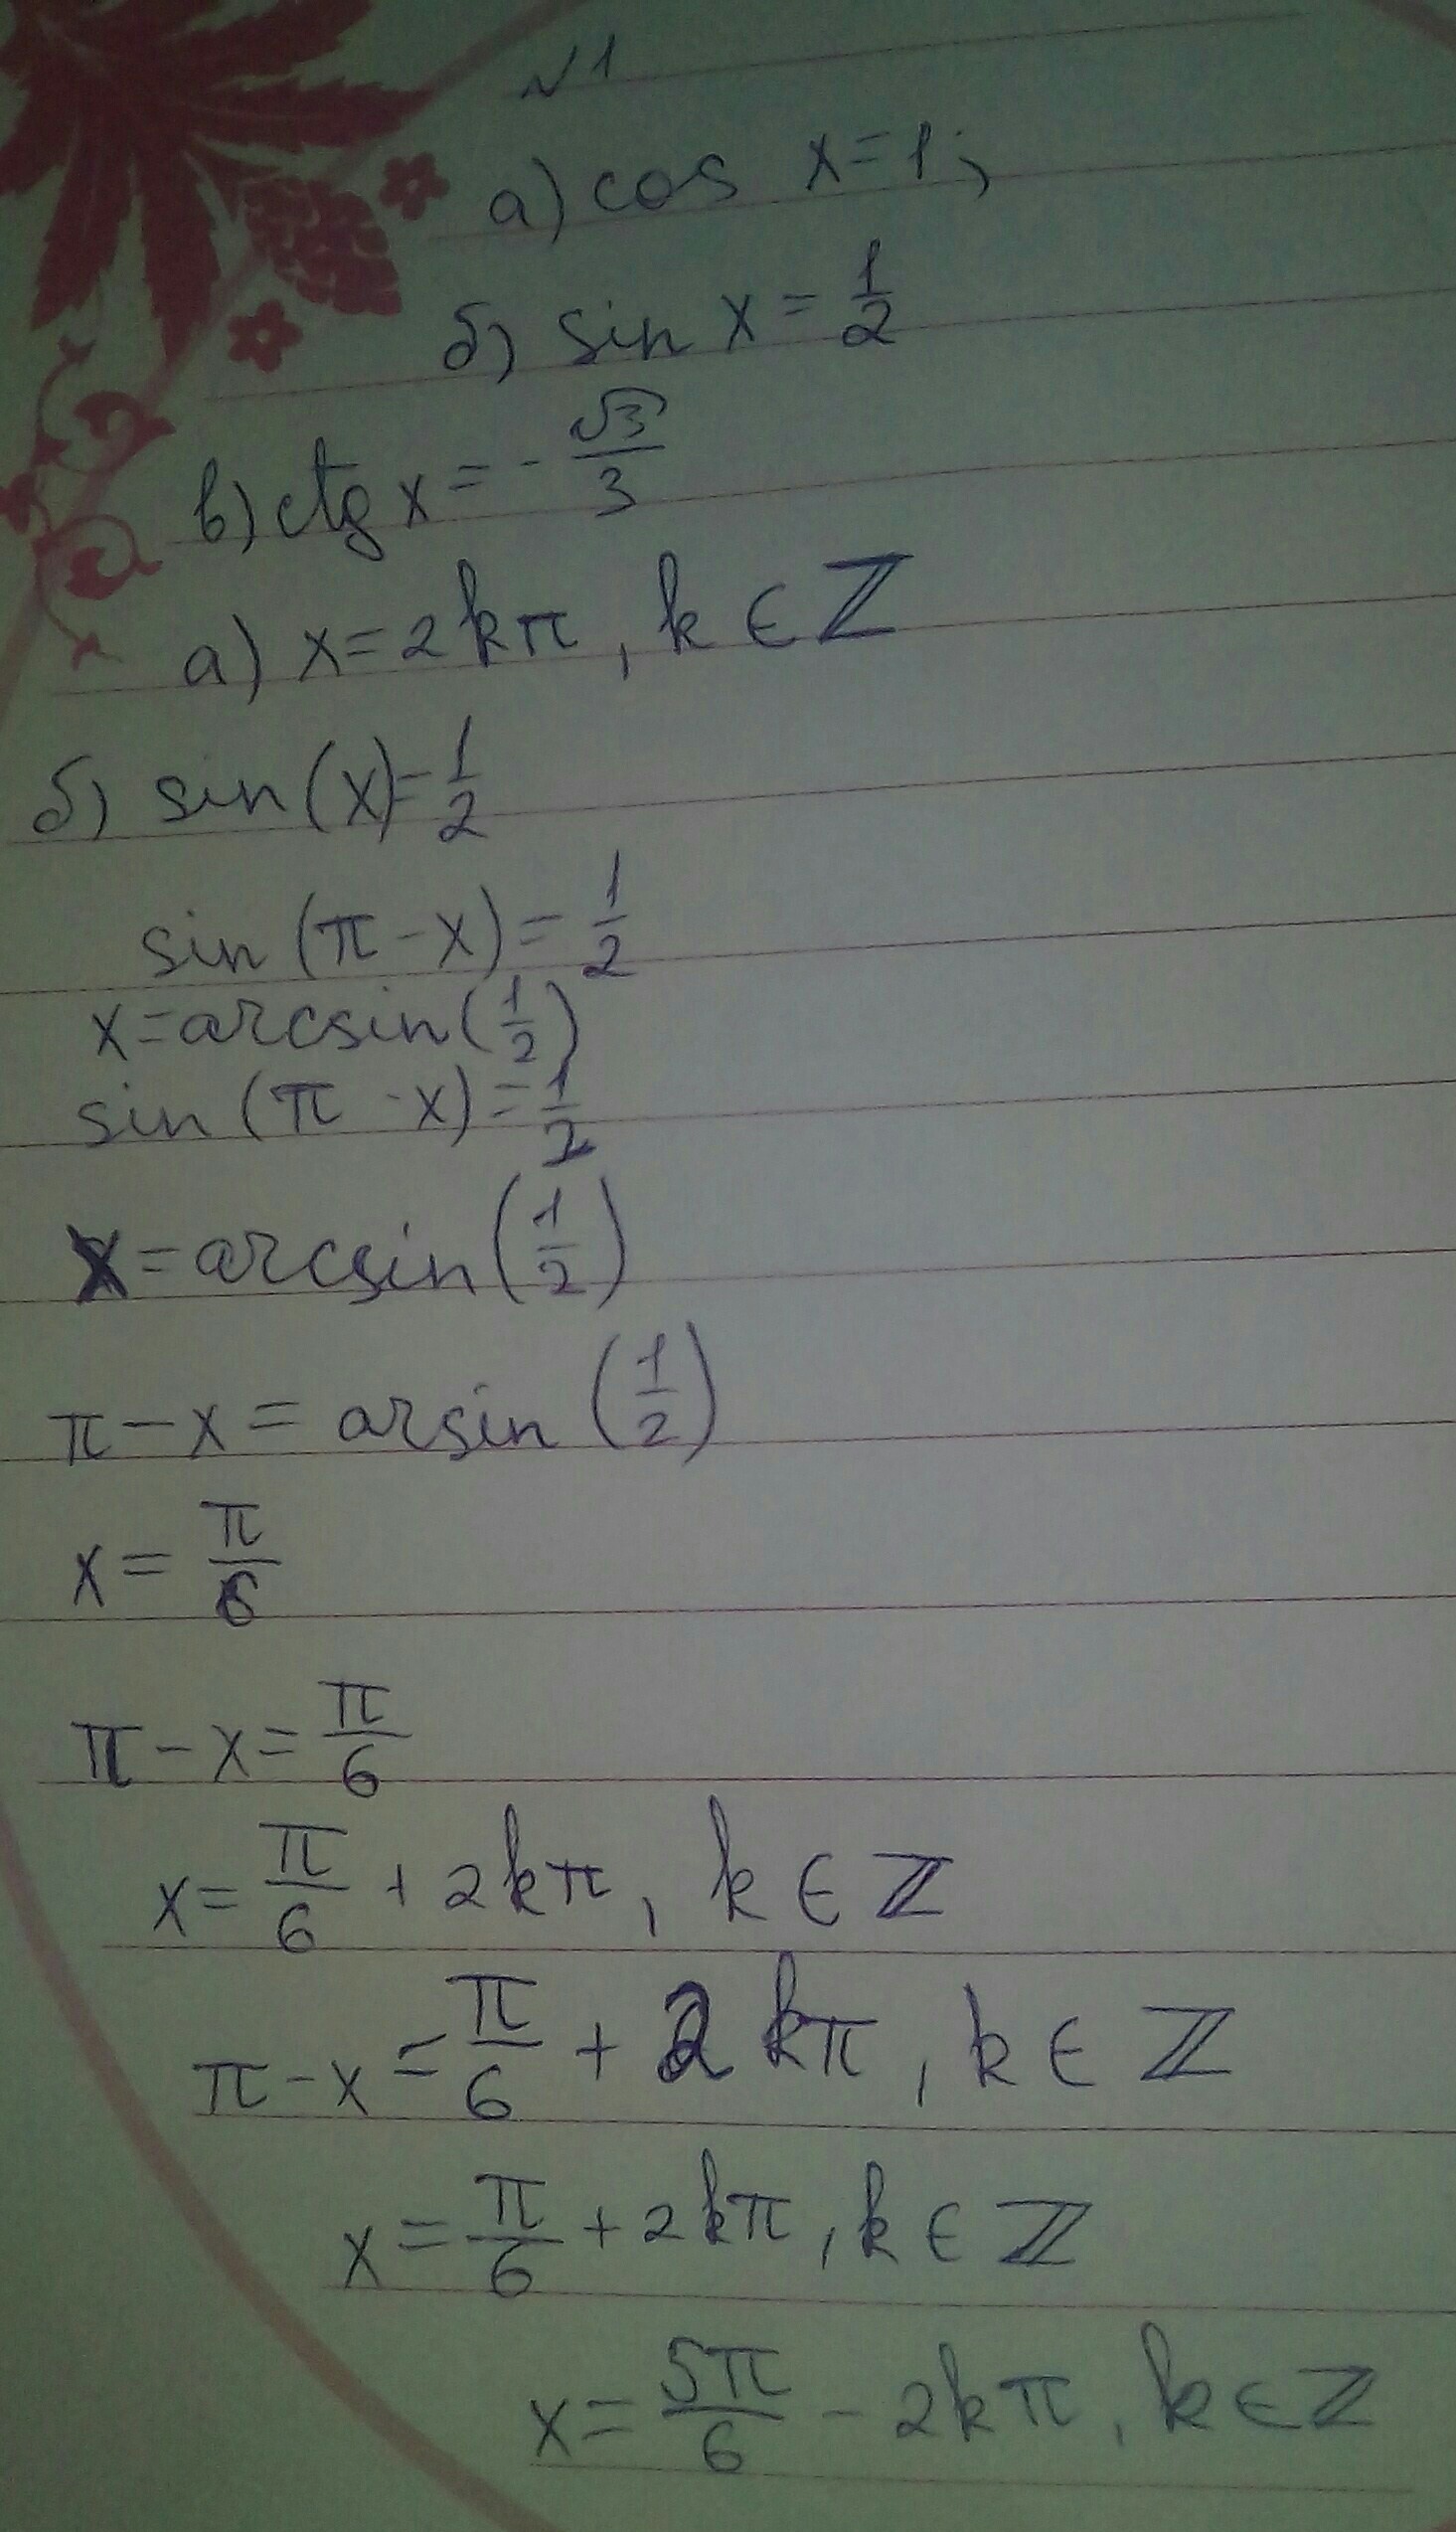 №1
а) cos x = 1;
б) sin x = 1/2
в) ctg x = - √3/3
а) x = 2kπ, k ∈ ℤ
б) sin(x) = 1/2
sin(π - x) = 1/2
x = arcsin(1/2)
sin(π - x) = 1/2
x = arcsin(1/2)
π - x = arsin(1/2)
x = π/6
π - x = π/6
x = π/6 + 2kπ, k ∈ ℤ
π - x = π/6 + 2kπ, k ∈ ℤ
x = π/6 + 2kπ, k ∈ ℤ
x = 5π/6 - 2kπ, k ∈ ℤ